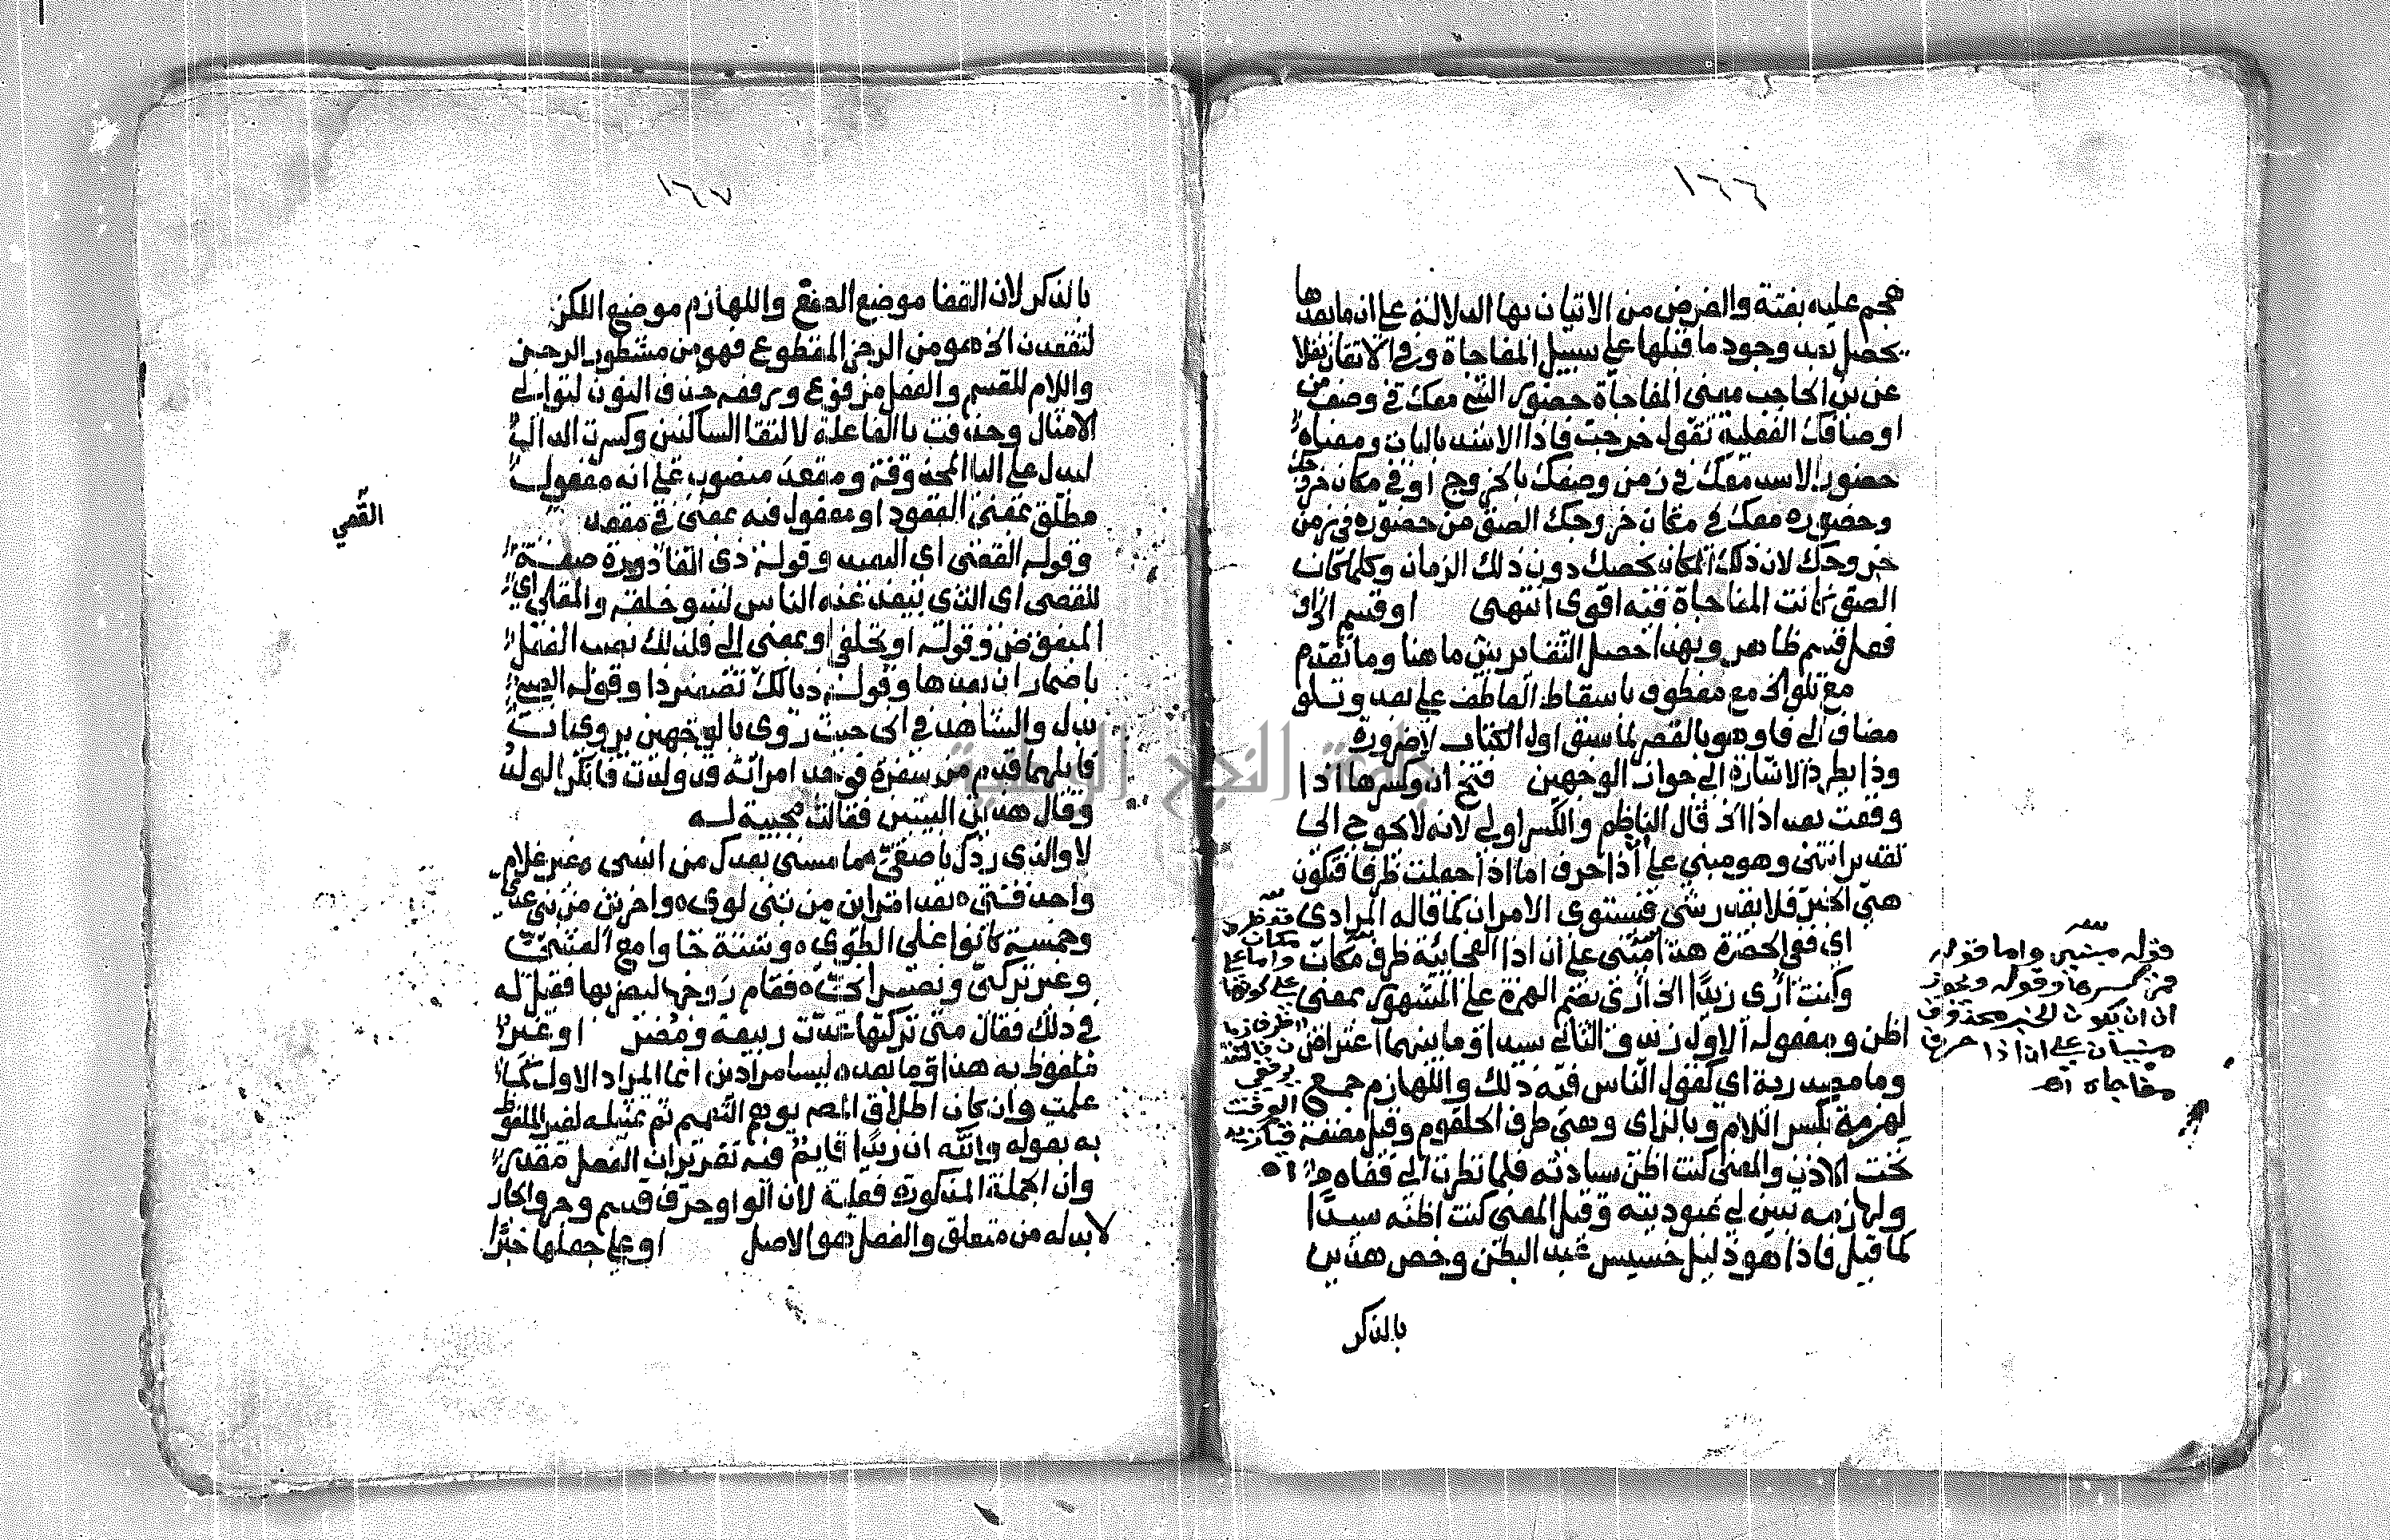 ١٦٦
هجم عليه بغتة والغرض من الاتيان بها الدلالة على ان ما بعدها
يحصل بعد وجود ما قبلها على سبيل المفاجاة وفي الاتقان نقلا
عن بن الحاجب معنى المفاجاة حضور الشئ معك في وصف من
اوصافك الفعلية تقول خرجت فاذا الاسد بالباب ومعناه
حضور الاسد معك في زمن وصفك بالخروج او في مكان خروجك
وحضوره معك في مكان خروجك الصق من حضوره في زمن
خروجك لان ذلك المكان يخصك دون ذلك الزمان وكلما كان
الصق كانت المفاجاة فيه اقوى انتهى او قسم الى او
فعل قسم ظاهر وبهذا حصل التغاير بين ما هنا وما تقدم
مع تلو الخ مع معطوف باسقاط العاطف على بعد وتلو
مضاف الى فا وهو بالقصر لما سبق اول الكتاب لا ضرورة
وذا يطرد الاشارة الى جواز الوجهين فتح ان وكسرها اذا
وقعت بعد اذا الخ قال الناظم والكسر اولى لانه لا يحوج الى
تقدير انتهى وهو مبني على أن اذا حرف اما اذا جعلت ظرفا فتكون
هي الخبر فلا تقدير شئ فيستوي الامران كما قاله المرادي
اي ففي الحضرة هذا مبني على ان اذا الفجائية ظرف مكان
وكنت أرى زيدا الخ أرى بضم الهمزة على المشهور بمعنى
اظن ومفعوله الاول زيد والثاني سيدا وما بينهما اعتراض
وما مصدرية اي كقول الناس فيه ذلك واللهازم جمع
لهزمة بكسر اللام وبالزاى وهي طرف الحلقوم وقيل مضغة
تحت الاذن والمعنى كنت اظن سيادته فلما نظرت الى قفاه
ولهازمه تبين لي عبوديته وقيل المعنى كنت اظنه سيدا
كما قيل فاذا هو ذليل خسيس عبد البطن وخص هذين
بالذكر
قوله مبنيين واما قوله
فمن كسرها وقوله ويجوز
ان ان يكون الخبر محذوف
مبنيان على ان اذا حرف
مفاجاه اه
١٦٧
بالذكر لان القفا موضع الصفع واللهازم موضع اللكز
لتقعدن الخ هو من الرجز المقطوع فهو من مشطور الرجز
واللام للقسم والفعل مرفوع ورفعه حذف النون لتوالي
الامثال وحذفت يا الفاعلة لالتقا الساكنين وكسرت الدال
ليدل على اليا المحذوفة ومقعد منصوب على انه مفعول
مطلق بمعنى القعود او مفعول فيه بمعنى في مقعد
وقوله القصي اي البعيد وقوله ذى القاذورة صفة
للقصي اي الذي تبعد عنه الناس لسو خلقه والمقلي اي
المبغوض وقوله او تحلفي او بمعنى الى فلذلك نصب الفعل
باضمار ان بعدها وقوله ذيالك تصغير ذا وقوله الصبي
بدل والشاهد في اني حيث روى بالوجهين يروى ان
قائلهما قدم من سفره فوجد امراته قد ولدت فانكر الولد
وقال هذين البيتين فقالت مجيبة له
لا والذي ردك يا صفي ما مسني بعدك من انسي وغير غلام
واحد فتى بعد امراين من بني لوى واخرين من بني عدى
وخمسة كانوا على الطوى وستة جاوا مع العشى
وغير تركي ونصراني فقام زوجها ليضربها فقيل له
في ذلك فقال متى تركتها عدت ربيعة ومضر او غير
ملفوظ به هذا وما بعده ليسا مرادين انما المراد الاول كما
علمت وان كان اطلاق المص يوهم التعميم ثم تمثيله لغير الملفوظ
به بقوله والله ان زيدا قايم فيه تقرير ان الفعل مقدر
وان الجملة المذكورة فعلية لان الواو حرف قسم وجر والجار
لابد له من متعلق والفعل هو الاصل او على جعلها خبرا
القصي